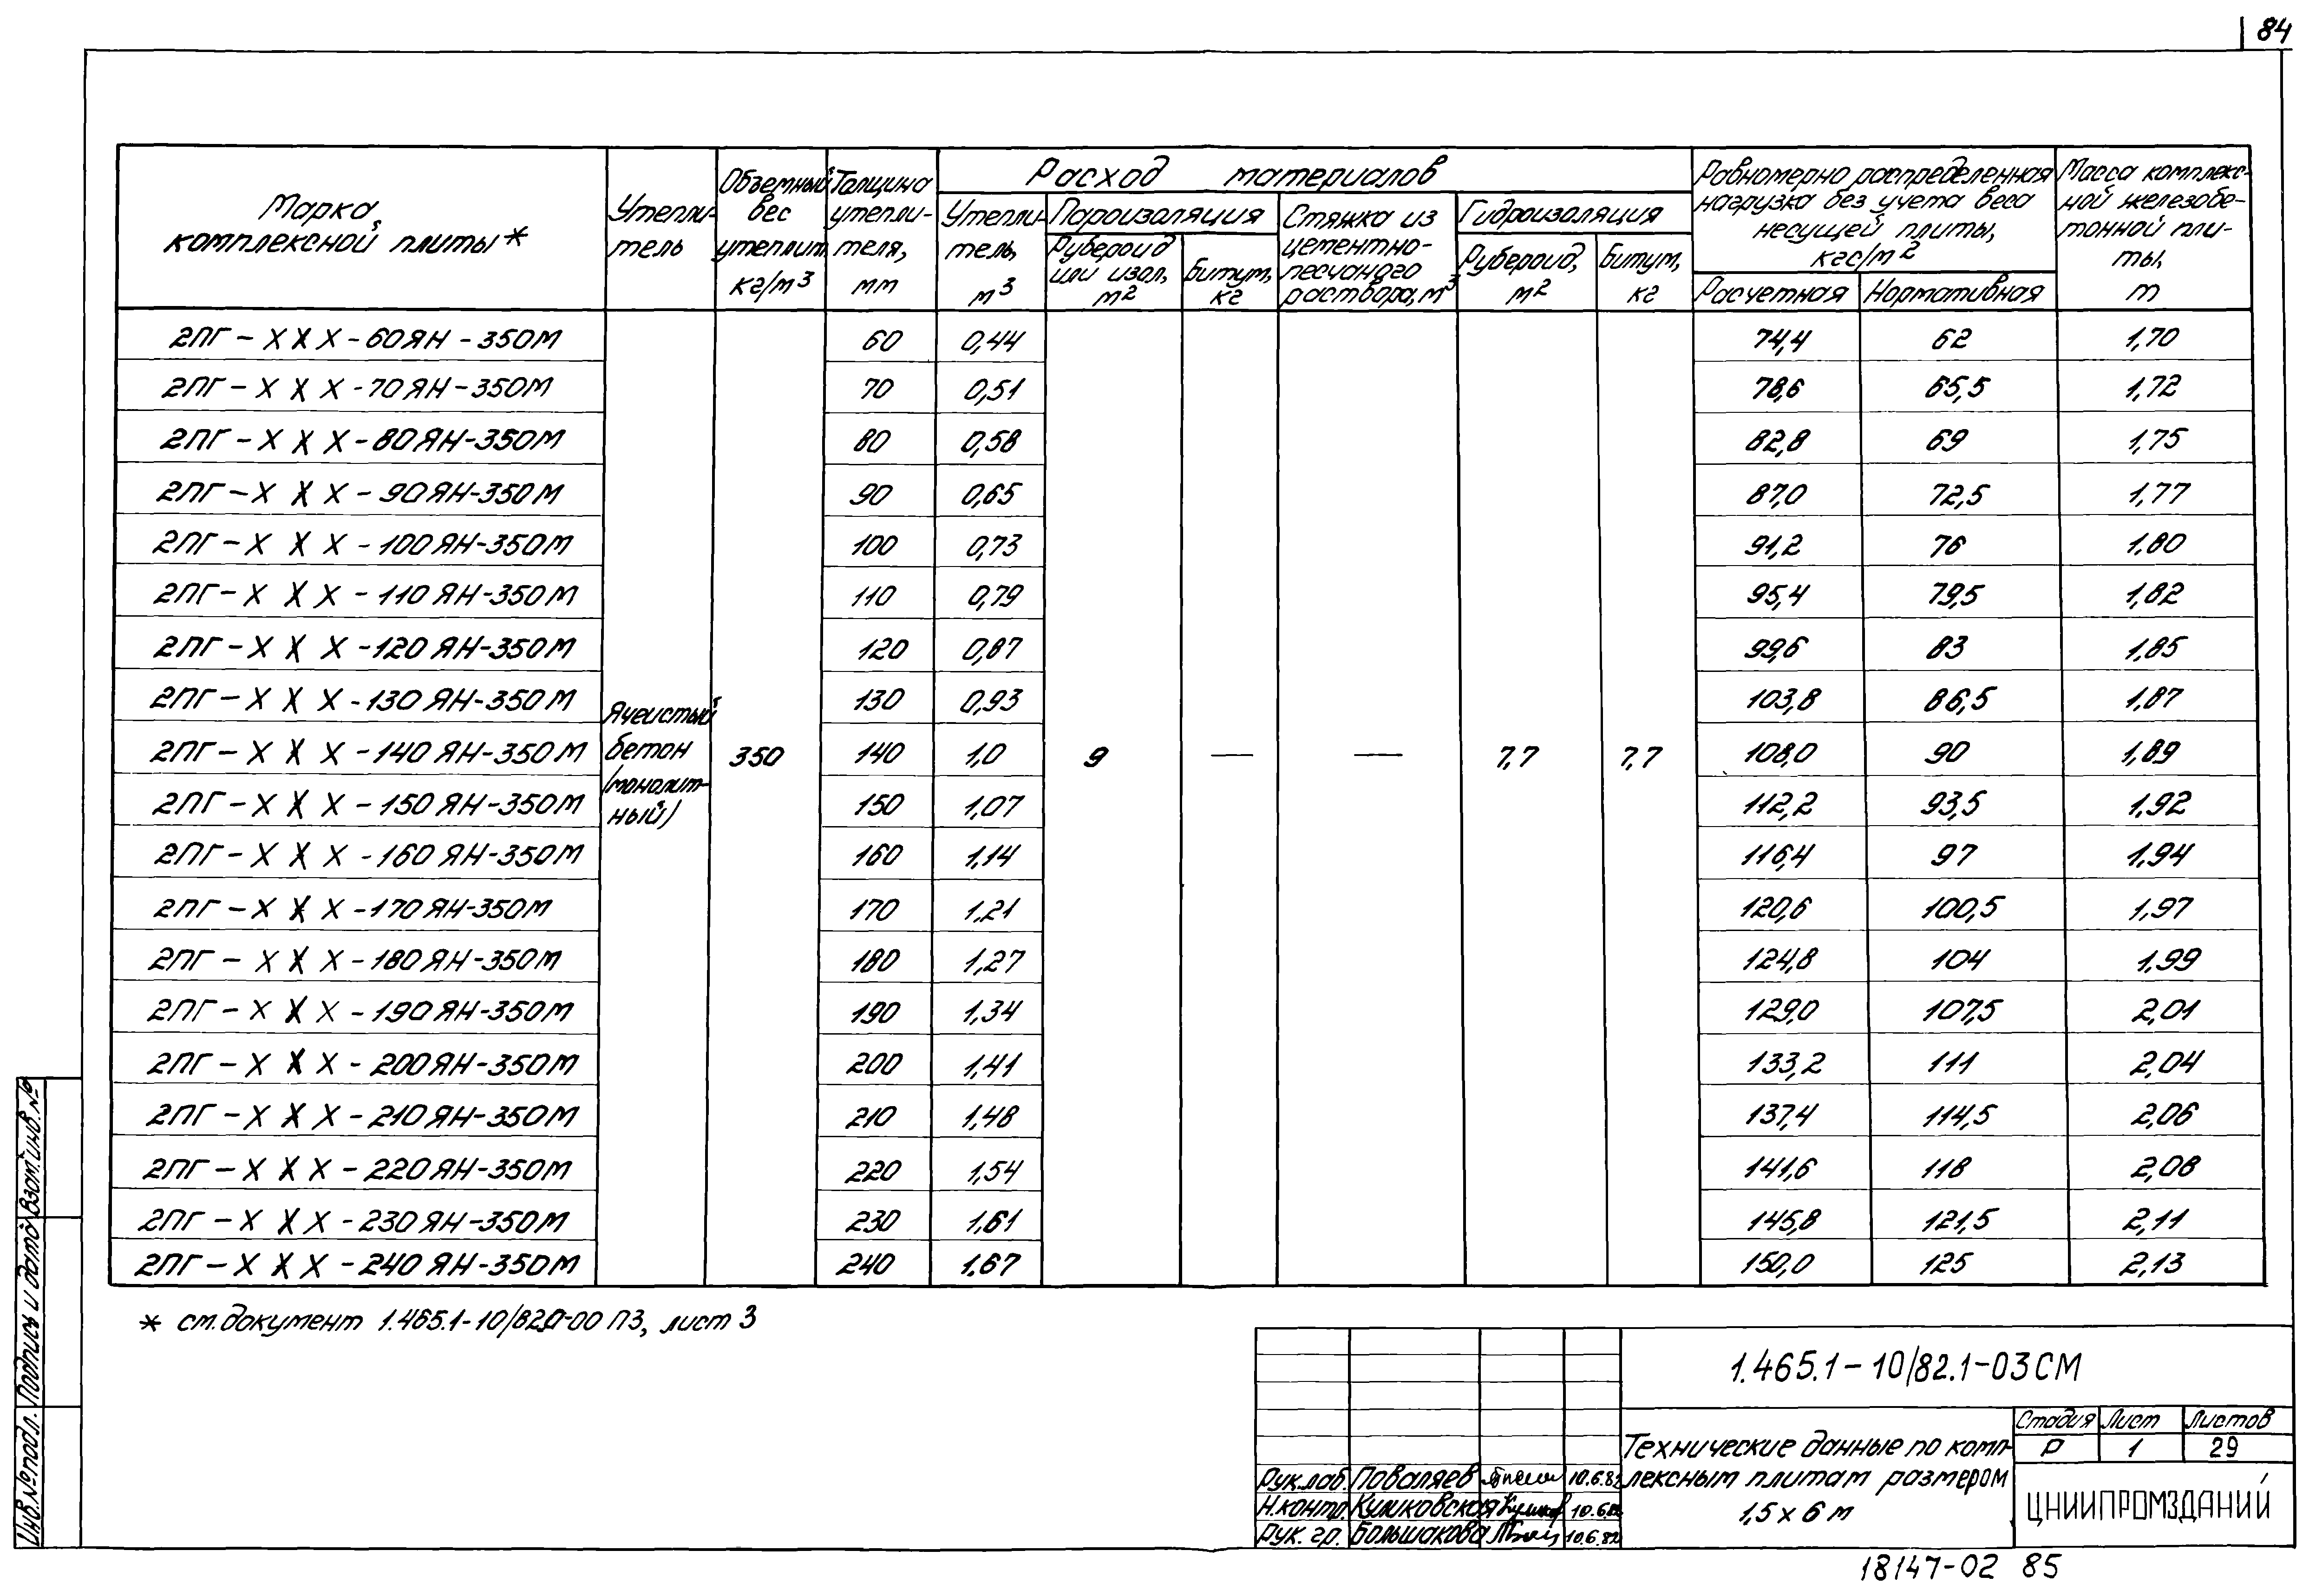 84
Марка комплексной плиты*
Утепли-тель
Объемный вес утеплит. кг/м³
Толщина утепли-теля, мм
Расход материалов
Утепли-тель, м³
Пароизоляция
Рубероид или изол, м²
Битум, кг
Стяжка из цементно-песчаного раствора, м³
Гидроизоляция
Рубероид, м²
Битум, кг
Равномерно распределенная нагрузка без учета веса несущей плиты, кгс/м²
Расчетная
Нормативная
Масса комплекс-ной железобе-тонной пли-ты, т
2ПГ-XXX-60ЯН-350М 60 0,44 74,4 62 1,70
2ПГ-XXX-70ЯН-350М 70 0,51 78,6 65,5 1,72
2ПГ-XXX-80ЯН-350М 80 0,58 82,8 69 1,75
2ПГ-XXX-90ЯН-350М 90 0,65 87,0 72,5 1,77
2ПГ-XXX-100ЯН-350М 100 0,73 91,2 76 1,80
2ПГ-XXX-110ЯН-350М 110 0,79 95,4 79,5 1,82
2ПГ-XXX-120ЯН-350М 120 0,87 99,6 83 1,85
2ПГ-XXX-130ЯН-350М 130 0,93 103,8 86,5 1,87
Ячеистый бетон (монолит-ный)
2ПГ-XXX-140ЯН-350М 350 140 1,0 9 — — 7,7 7,7 108,0 90 1,89
2ПГ-XXX-150ЯН-350М 150 1,07 112,2 93,5 1,92
2ПГ-XXX-160ЯН-350М 160 1,14 116,4 97 1,94
2ПГ-XXX-170ЯН-350М 170 1,21 120,6 100,5 1,97
2ПГ-XXX-180ЯН-350М 180 1,27 124,8 104 1,99
2ПГ-XXX-190ЯН-350М 190 1,34 129,0 107,5 2,01
2ПГ-XXX-200ЯН-350М 200 1,41 133,2 111 2,04
2ПГ-XXX-210ЯН-350М 210 1,48 137,4 114,5 2,06
2ПГ-XXX-220ЯН-350М 220 1,54 141,6 118 2,08
2ПГ-XXX-230ЯН-350М 230 1,61 145,8 121,5 2,11
2ПГ-XXX-240ЯН-350М 240 1,67 150,0 125 2,13
* см. документ 1.465.1-10/82.0-00 ПЗ, лист 3
Инв.№подл. Подпись и дата Взам.инв.№
1.465.1-10/82.1-03СМ
Технические данные по комп-
лексным плитам размером
1,5 x 6 м
Стадия Лист Листов
Р 1 29
ЦНИИПРОМЗДАНИЙ
Рук.лаб. Поваляев 10.6.82
Н.контр. Куликовская 10.6.82
Рук. гр. Большакова 10.6.82
18147-02 85